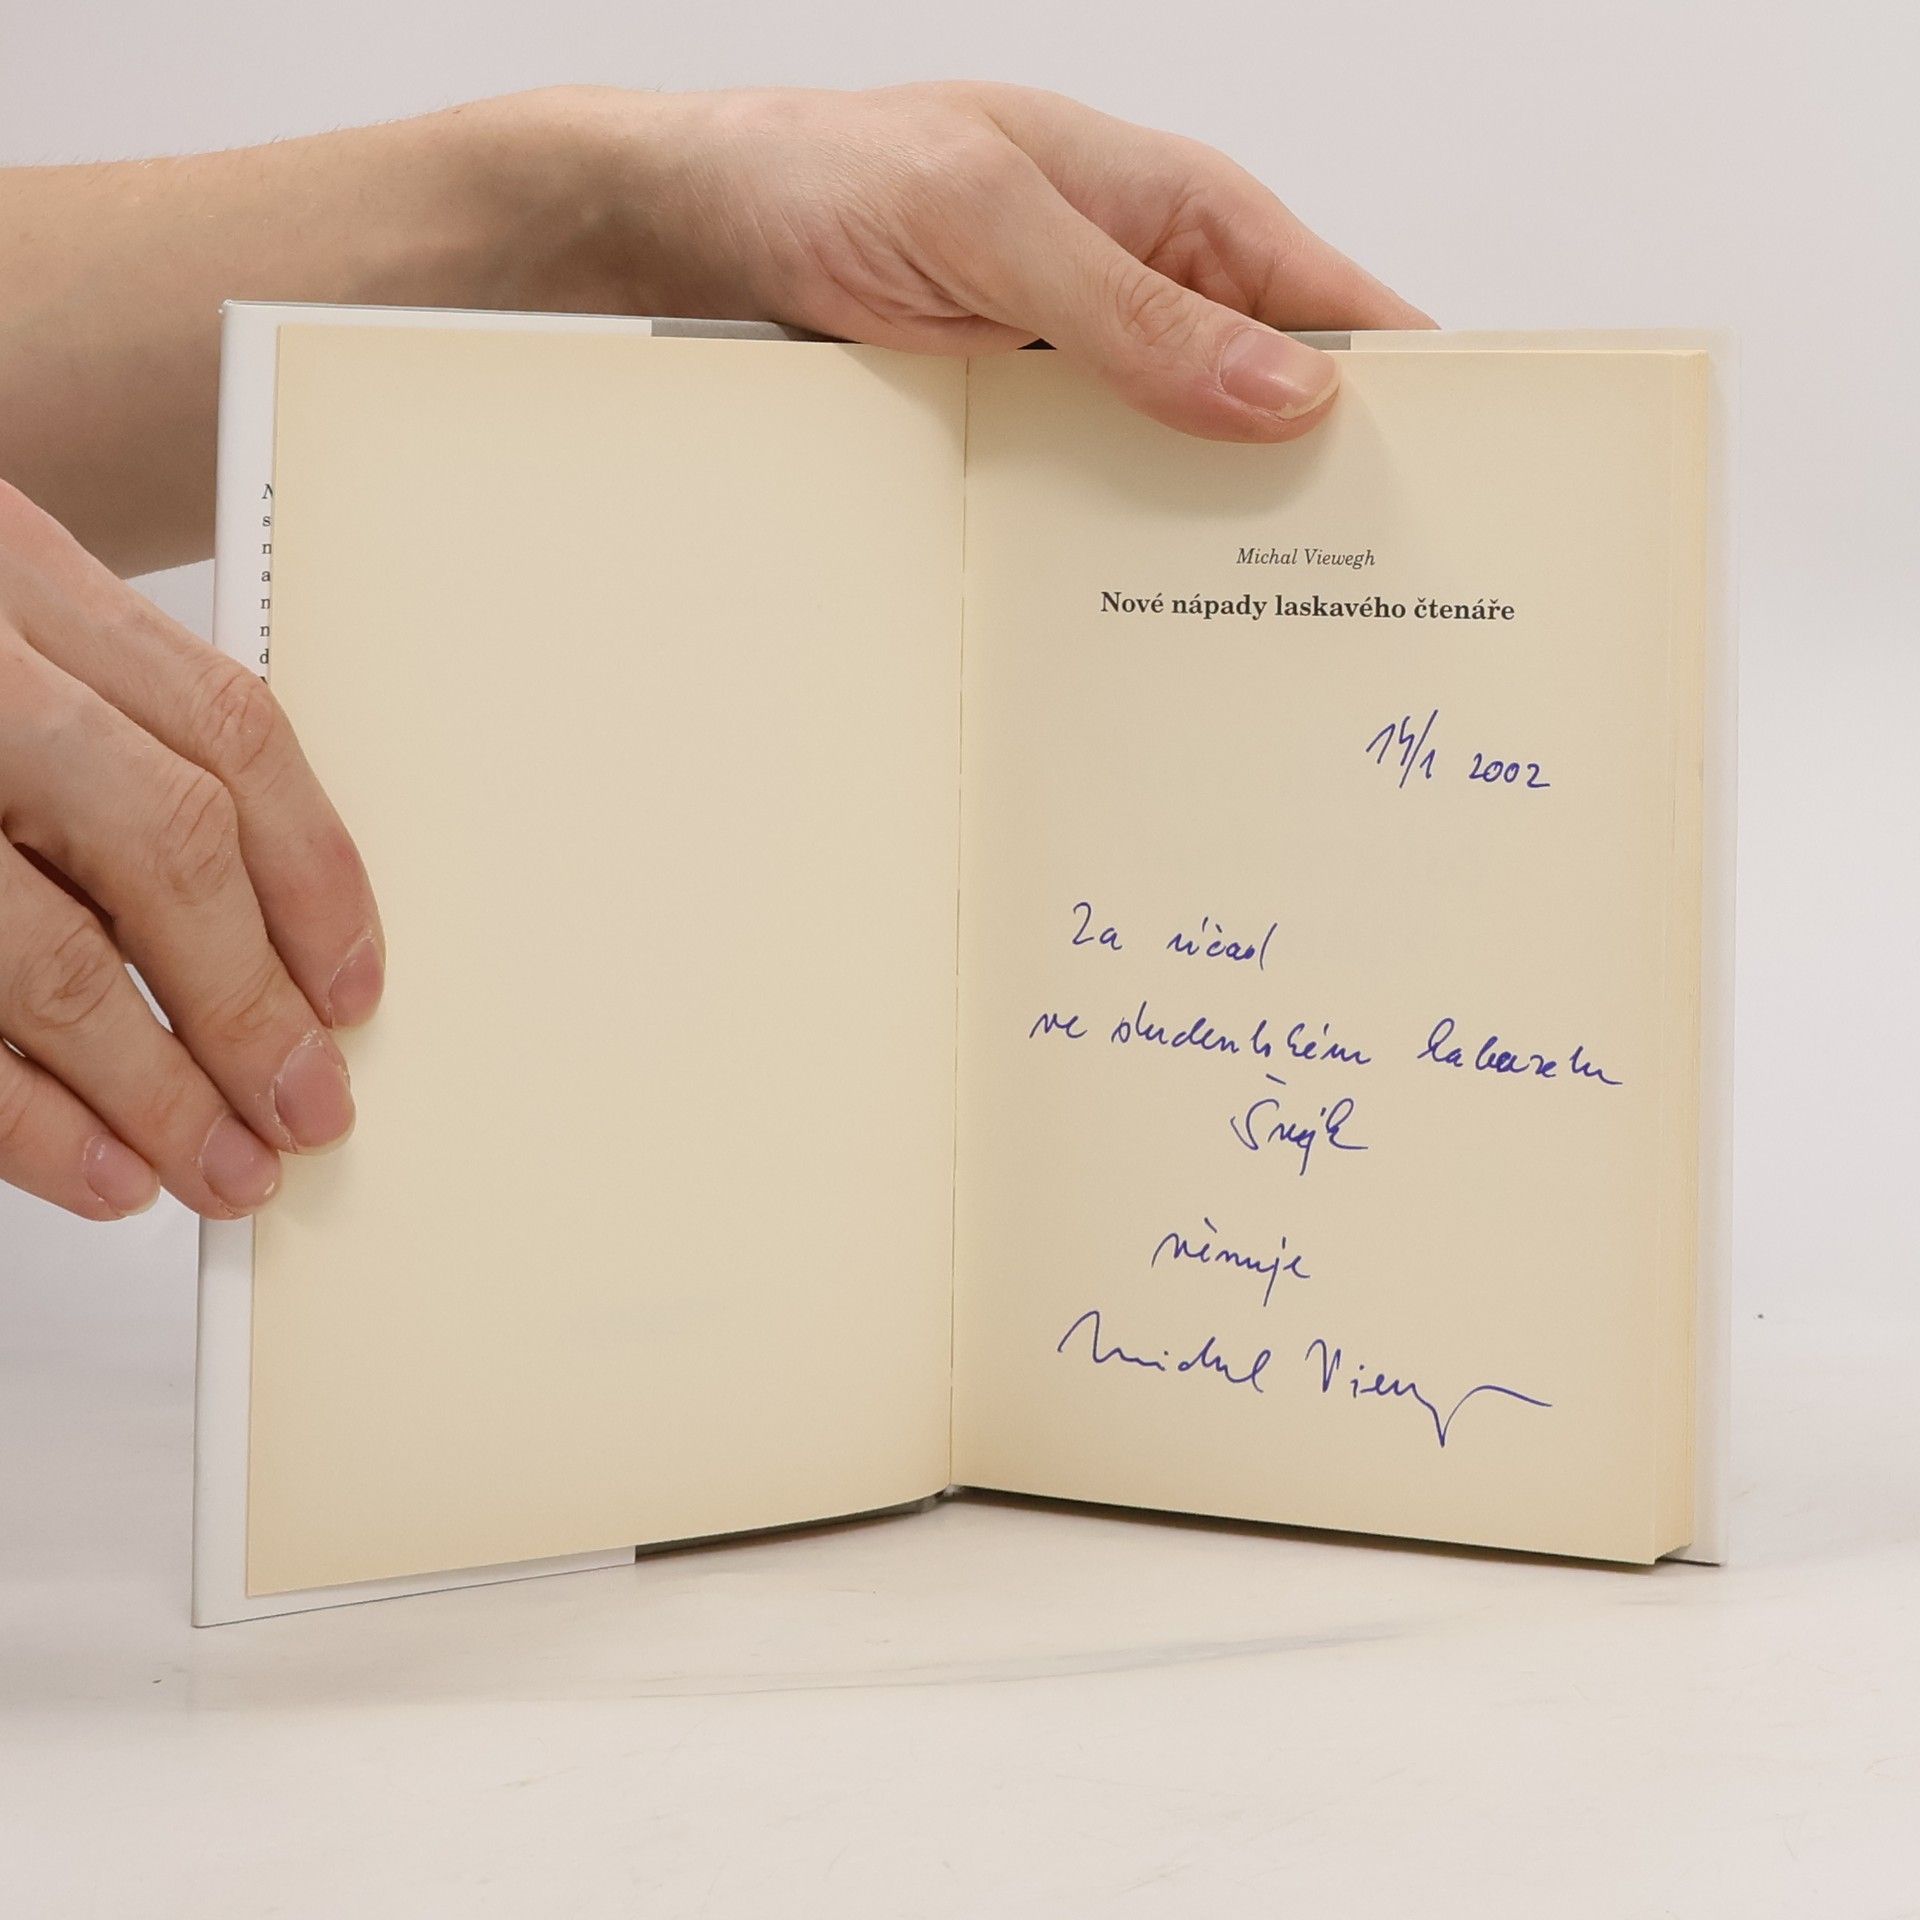 N
s
n
a
n
n
d
Michal Viewegh
Nové nápady laskavého čtenáře
14/1 2002
Za účast
ve studentském kabaretu
Švejk
věnuje
Michal Viewegh